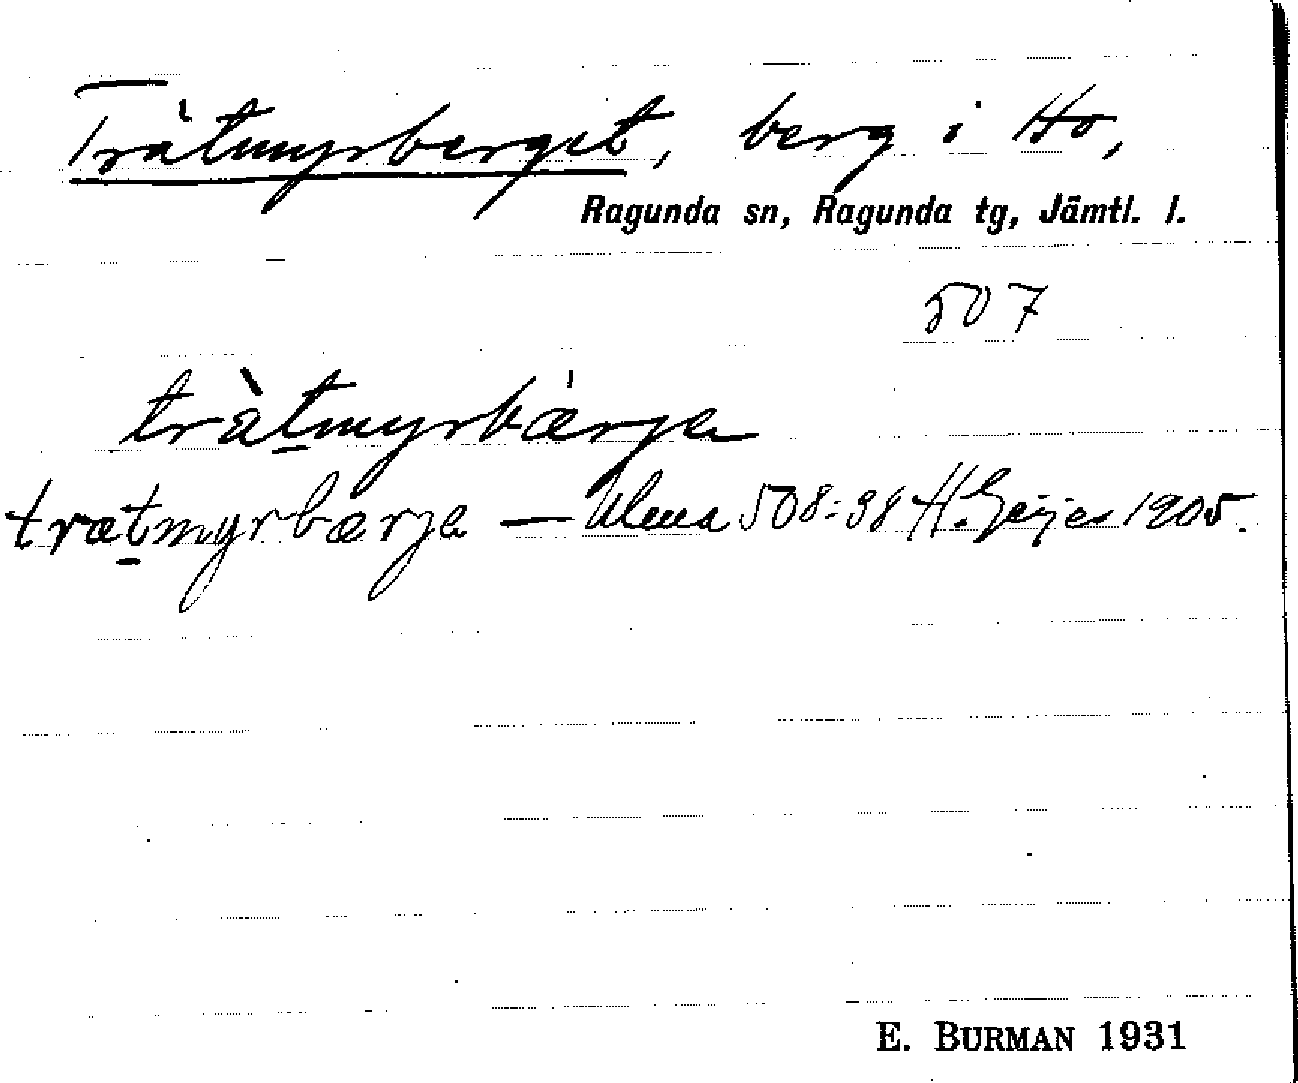 Tràtmyrberget, berg i Ho,
Ragunda sn, Ragunda tg, Jämtl. l.
507
tràt̠myrbærja
træt̠myrbærja — Ulma 508:38 H. Geijer 1905.
E. BURMAN 1931